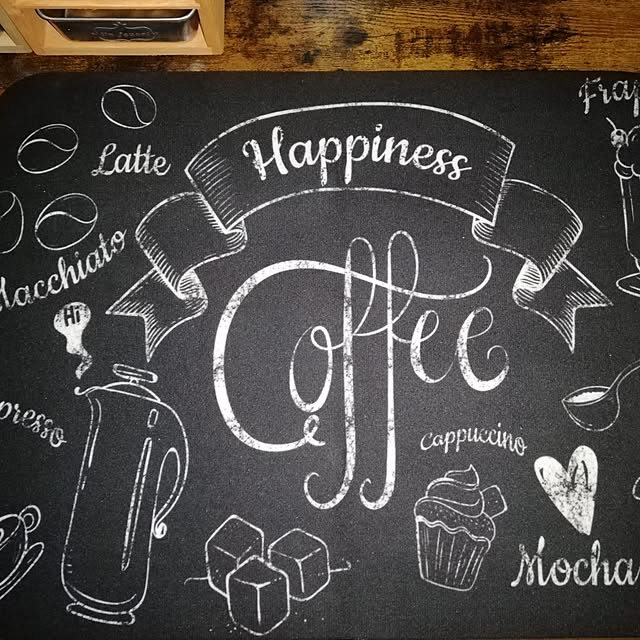 Frap
Happiness
Latte
Macchiato
Hi
Coffee
presso
cappuccino
Mocha